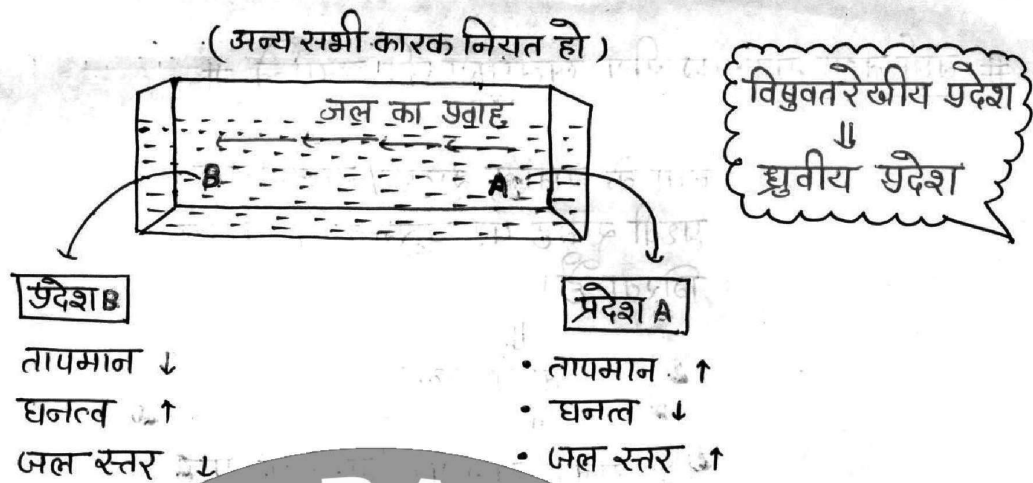 (अन्य सभी कारक नियत हो)
जल का प्रवाह
B
A
विषुवतरेखीय प्रदेश
⇓
ध्रुवीय प्रदेश
प्रदेश B
तापमान ↓
घनत्व ↑
जल स्तर ↓
प्रदेश A
• तापमान ↑
• घनत्व ↓
• जल स्तर ↑